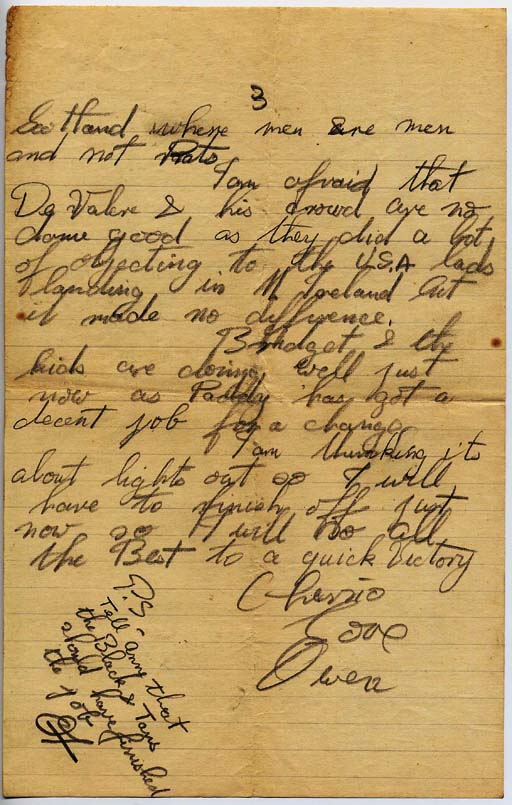 3
Scotland where men are men
and not Rats
I am afraid that
De Valere & his crowd are no
dame good as they did a lot
of objecting to the U.S.A lads
landing in N Ireland but
it made no difference.
Bridget & the
kids are doing well just
now as Paddy has got a
decent job for a change
I am thinking its
about lights out so I will
have to finish off just
now so I will Do all
the Best to a quick Victory
Cheerio
Love
Owen
P.S -
Tell anny that
the Black & Tans
should have finished
the job